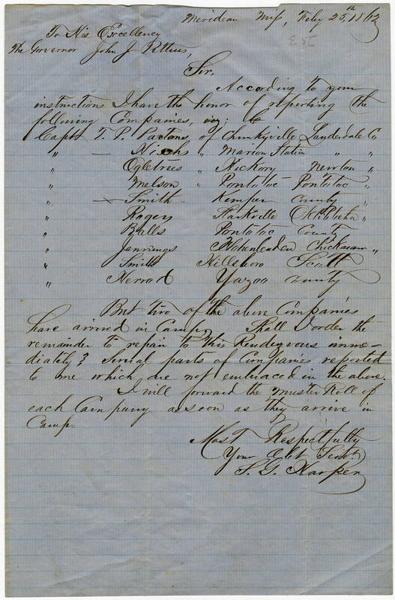 Meridian Miss, Feby 25th 1863
To His Excellency
The Governor John J Pettus,
Sir,
According to your
instructions I have the honor of reporting the
following Companies, viz; to
Captt T. P. Partons, of Chunkyville Lauderdale Co
" — Nichs " Marion Station " "
" Ogletree " Hickory Newton "
" Melson " Pontotoc Pontotoc "
" — Smith " Kemper county "
" Rogers " Starkville Oktibbeha "
" Balls " Pontotoc County
" Jennings " Chickasaw "
" Smith " Hillsboro Scott
" Herrod " Yazoo county
But two of the above Companies
have arrived in Camp, Shall I order the
remainder to repair to this Rendezvous imme-
diately? Several parts of Companies reported
to me which, are not embraced in the above.
I will forward the Muster Roll of
each Company as soon as they arrive in
Camp.
Most Respectfully
Your Obt Servt
S. G. Harper